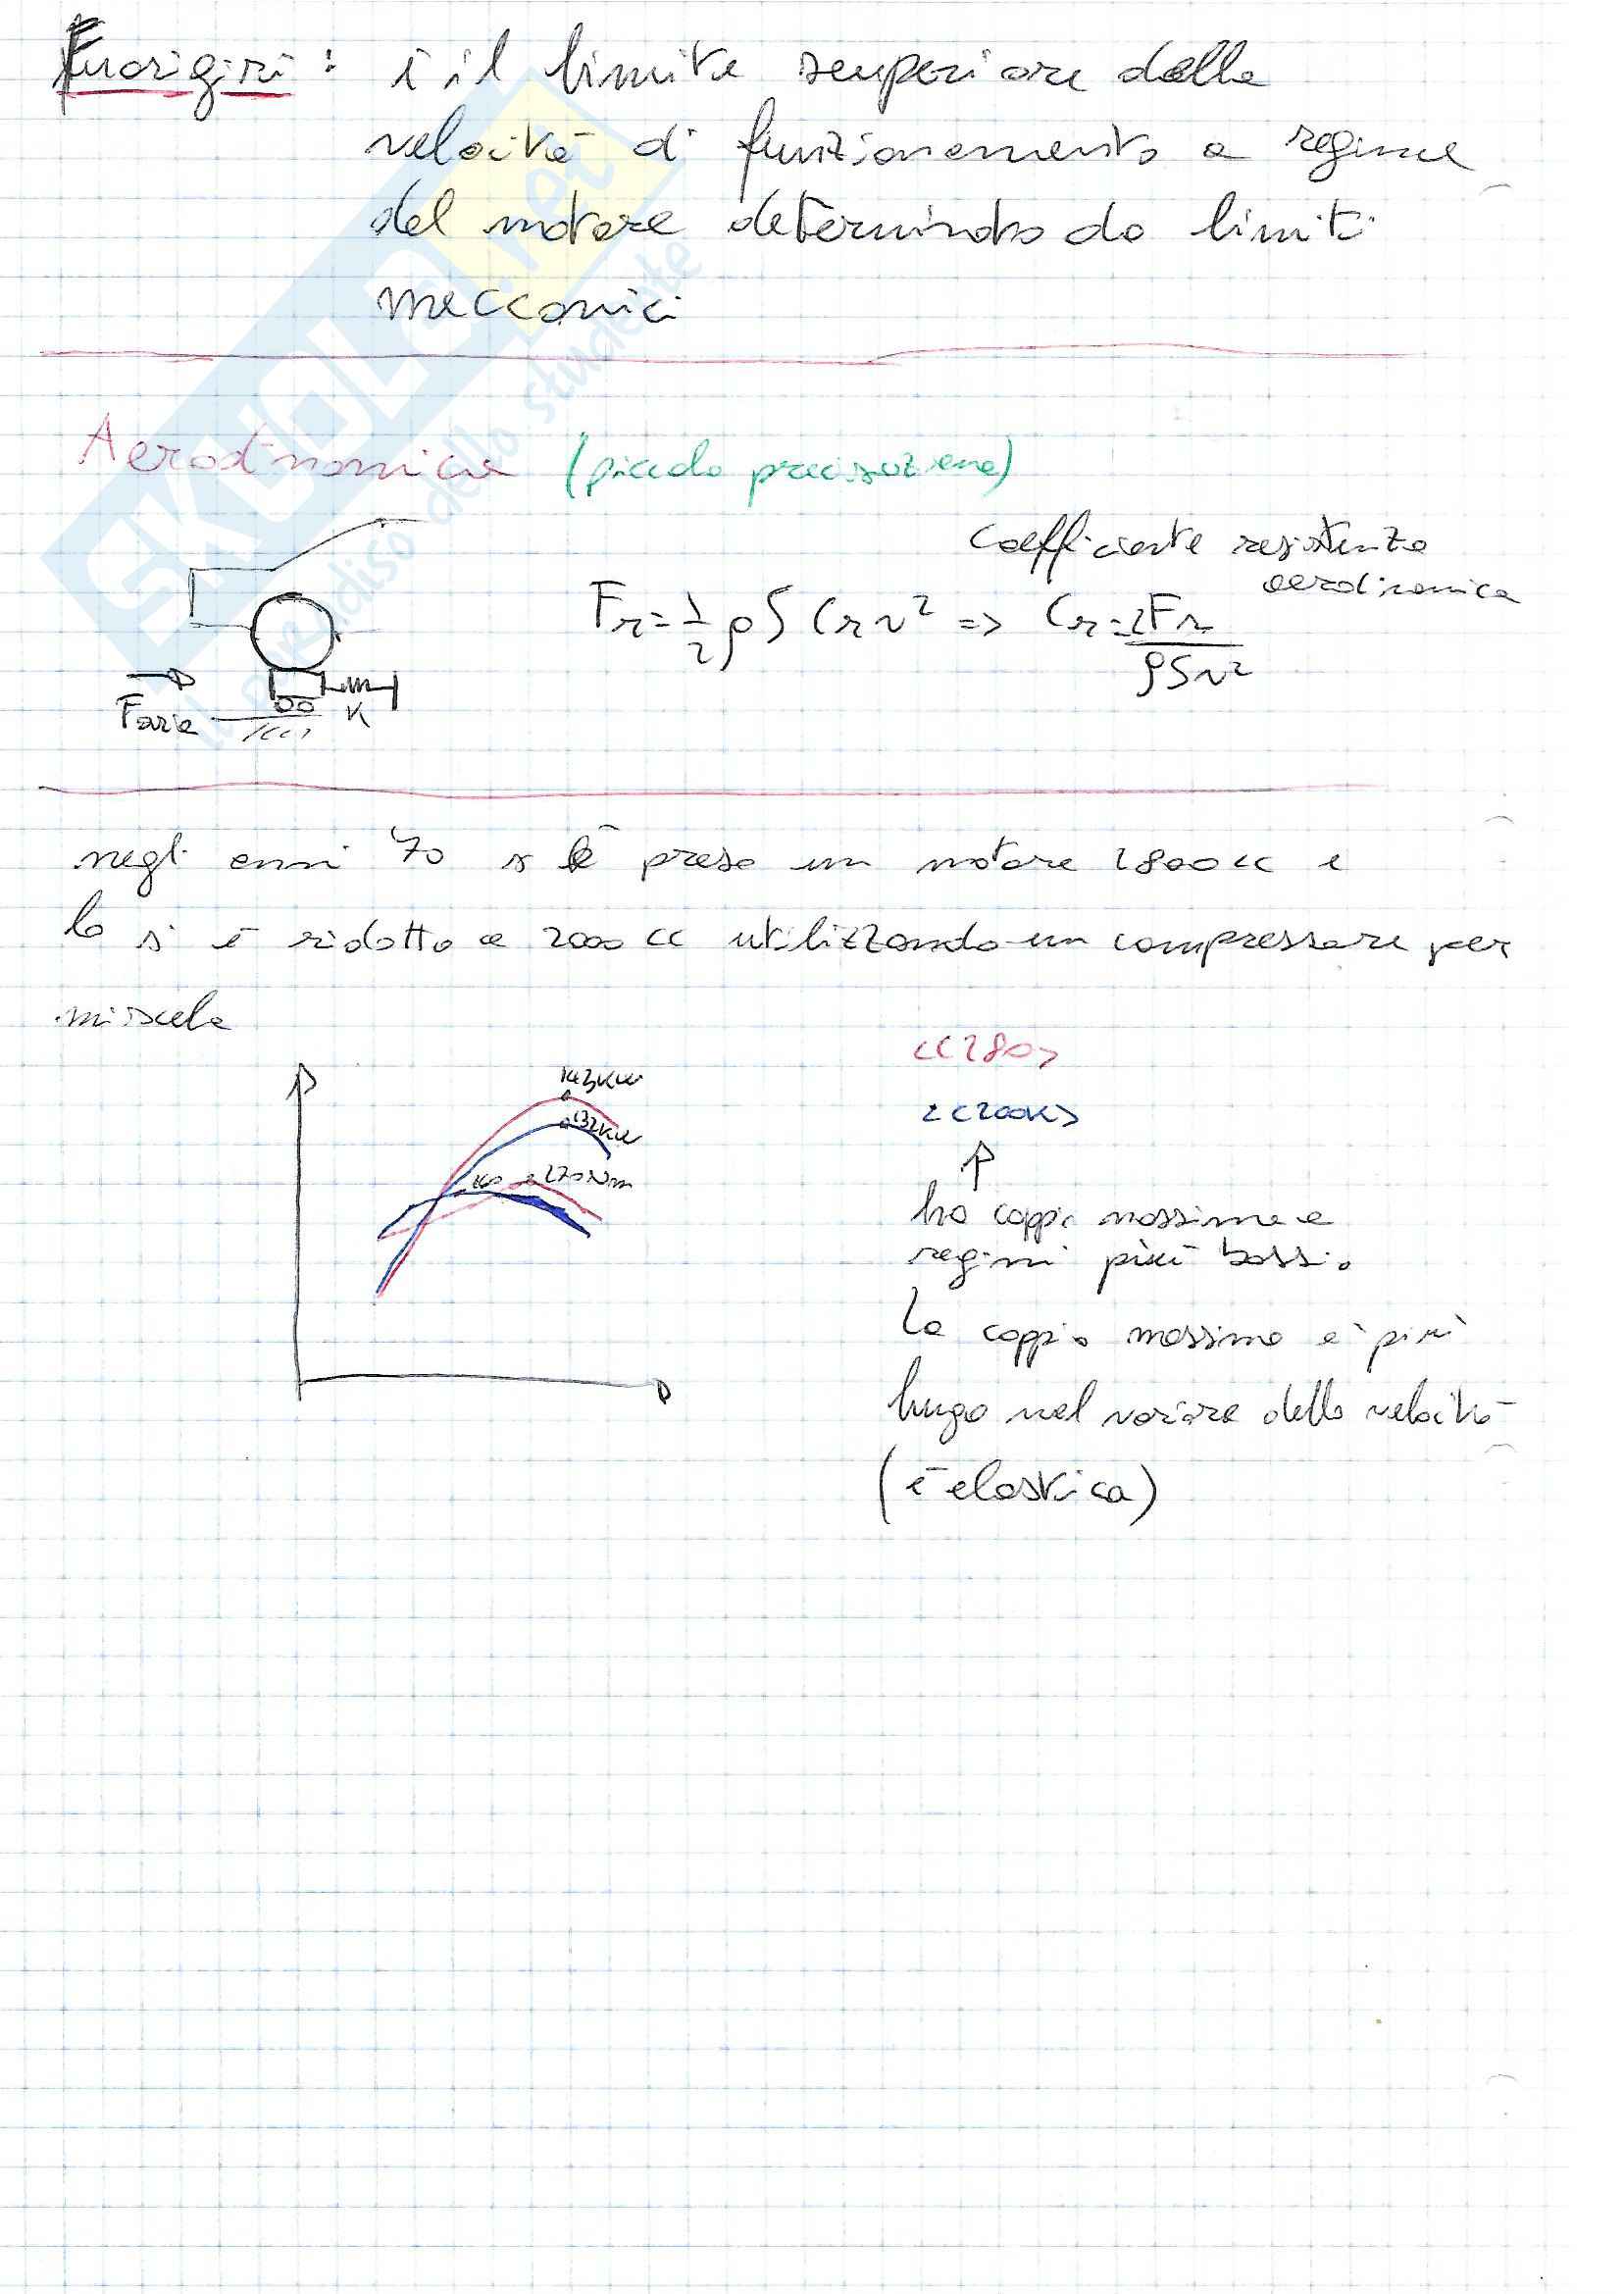 Fuorigiri: è il limite superiore della
velocità di funzionamento a regime
del motore determinato da limiti
meccanici
Aerodinamica (piccola precisazione)
coefficiente resistenza
aerodinamica
Fr = 1/2 ρ S Cr v² => Cr = 2Fr / ρSv²
Faria K
negli anni 70 si è preso un motore 2800 cc e
lo si è ridotto a 2000 cc utilizzando un compressore per
miscela
143KW
132KW
270Nm
<<280>>
2<200K>
ha coppia massima a
regimi più bassi.
la coppia massima è più
lunga nel variare della velocità
(è elastica)
SKUOLA.net
il paradiso dello studente